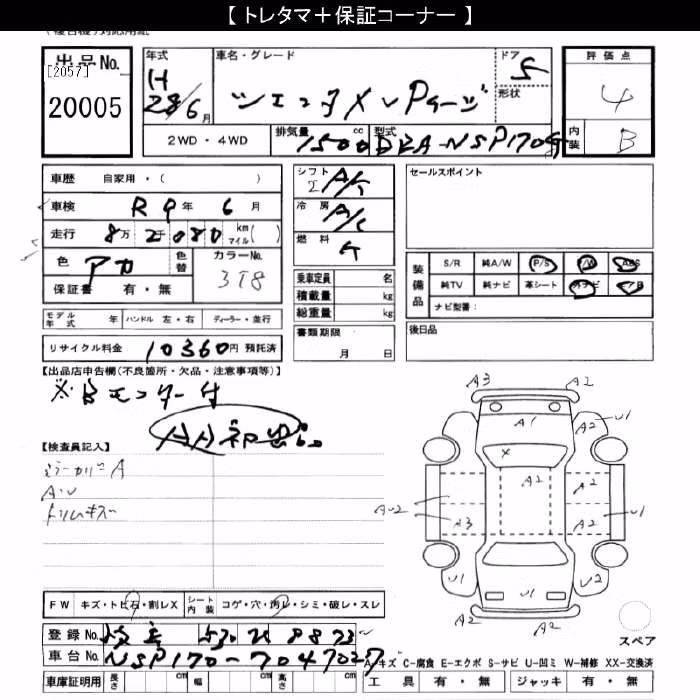 【 トレタマ＋保証コーナー 】
出品No.
[2057]
20005
年式
H
28/6月
車名・グレード
シエンタ X Vパケージ
ドア
5
形状
評価点
4
内装
B
2WD・4WD
排気量
1500cc
型式
DBA-NSP170G
車歴 自家用・( )
車検 R 9年 6月
走行 8万2千080 km マイル( )
色 アカ
色替
カラーNo.
3T8
保証書 有・無
シフト
I A/T
冷房
A/C
燃料
G
乗車定員 名
積載量 kg
総重量 kg
セールスポイント
装備品
S/R 純A/W P/S P/W ABS
純TV 純ナビ 革シート 外ナビ A/B
ナビ型番：
モデル年式 年 ハンドル 左・右 ディーラー・並行
リサイクル料金 10360円 預託済
書類期限
月 日
後日品
【出品店申告欄(不良箇所・欠品・注意事項等)】
※Bモニター付
【検査員記入】
ミラーカバーA
A・U
トリムキズ
A3 A2
A1 A2 U1
X
A2 A2
AU2 A3 A2 U1
U1 U1 U2
A2 A2
スペア
FW キズ・トビ石・割レX
シート内装 コゲ・穴・汚レ・シミ・破レ・スレ
登録 No. 530 8873
車台 No. NSP170-7047027
A-キズ C-腐食 E-エクボ S-サビ U-凹ミ W-補修 XX-交換済
車庫証明用 長さ cm 幅 cm 高さ cm
工具 有・無 ジャッキ 有・無